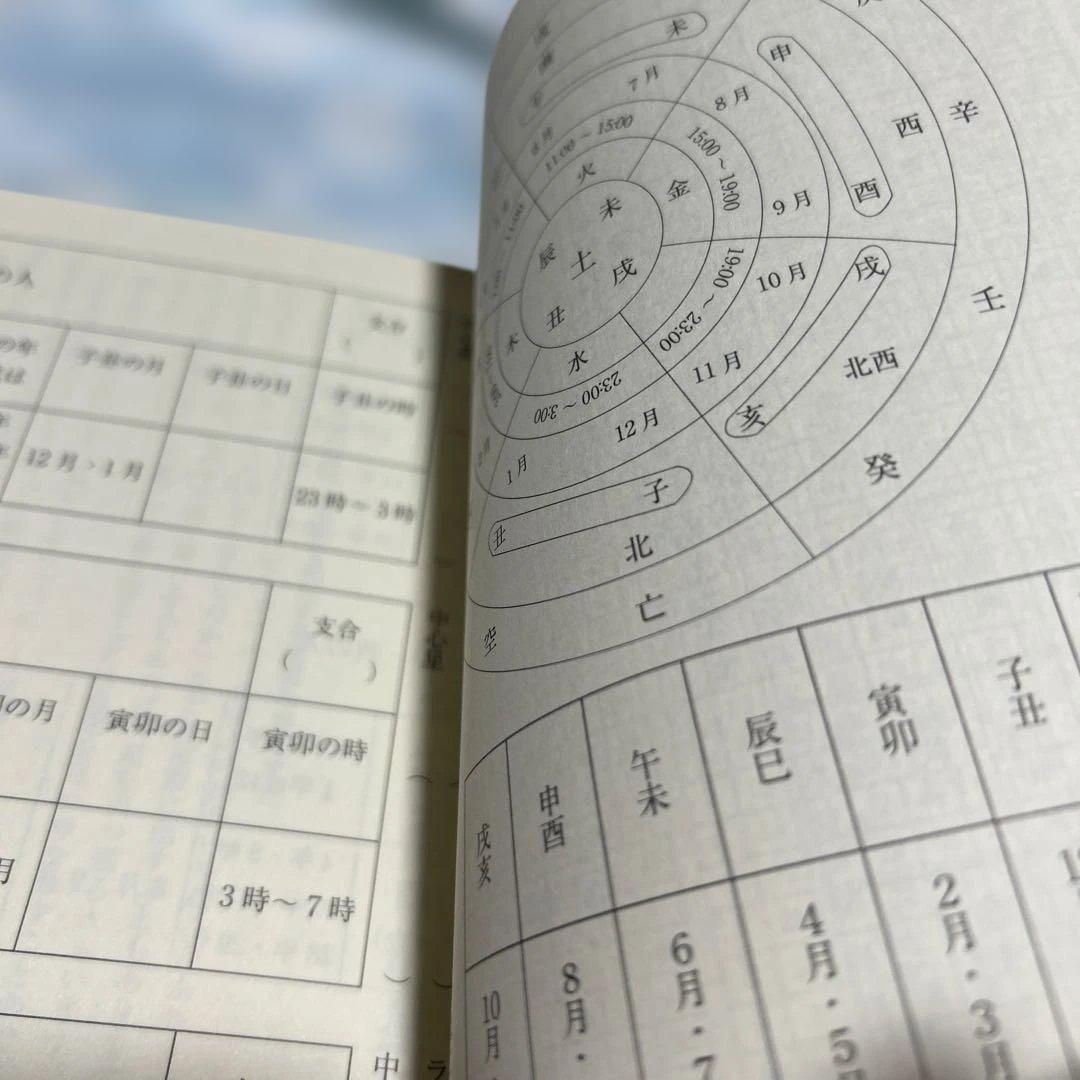 の人
支合
(　　)
の年
子丑の月
子丑の日
子丑の時
12月・1月
23時～3時
支合
(　　)
の月
寅卯の日
寅卯の時
月
3時～7時
中心星
中
ラ
未
申
7月
8月
西
辛
11:00～15:00
15:00～19:00
火
金
酉
未
9月
辰
土
戌
19:00～23:00
10月
戌
壬
丑
木
水
23:00～3:00
11月
北西
12月
亥
1月
癸
子
丑
北
亡
空
子丑
寅卯
辰巳
午未
申酉
戌亥
2月・3月
4月・5
6月・7
8月・
10月